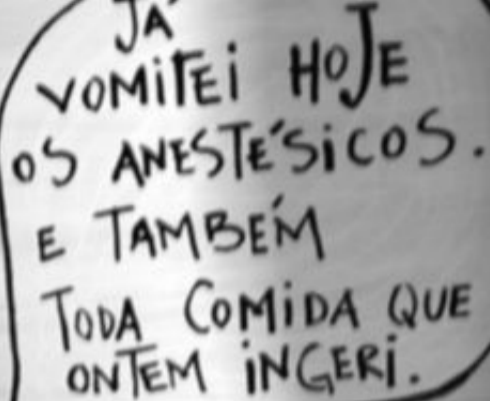 JÁ
VOMITEI HOJE
OS ANESTÉSICOS.
E TAMBÉM
TODA COMIDA QUE
ONTEM INGERI.